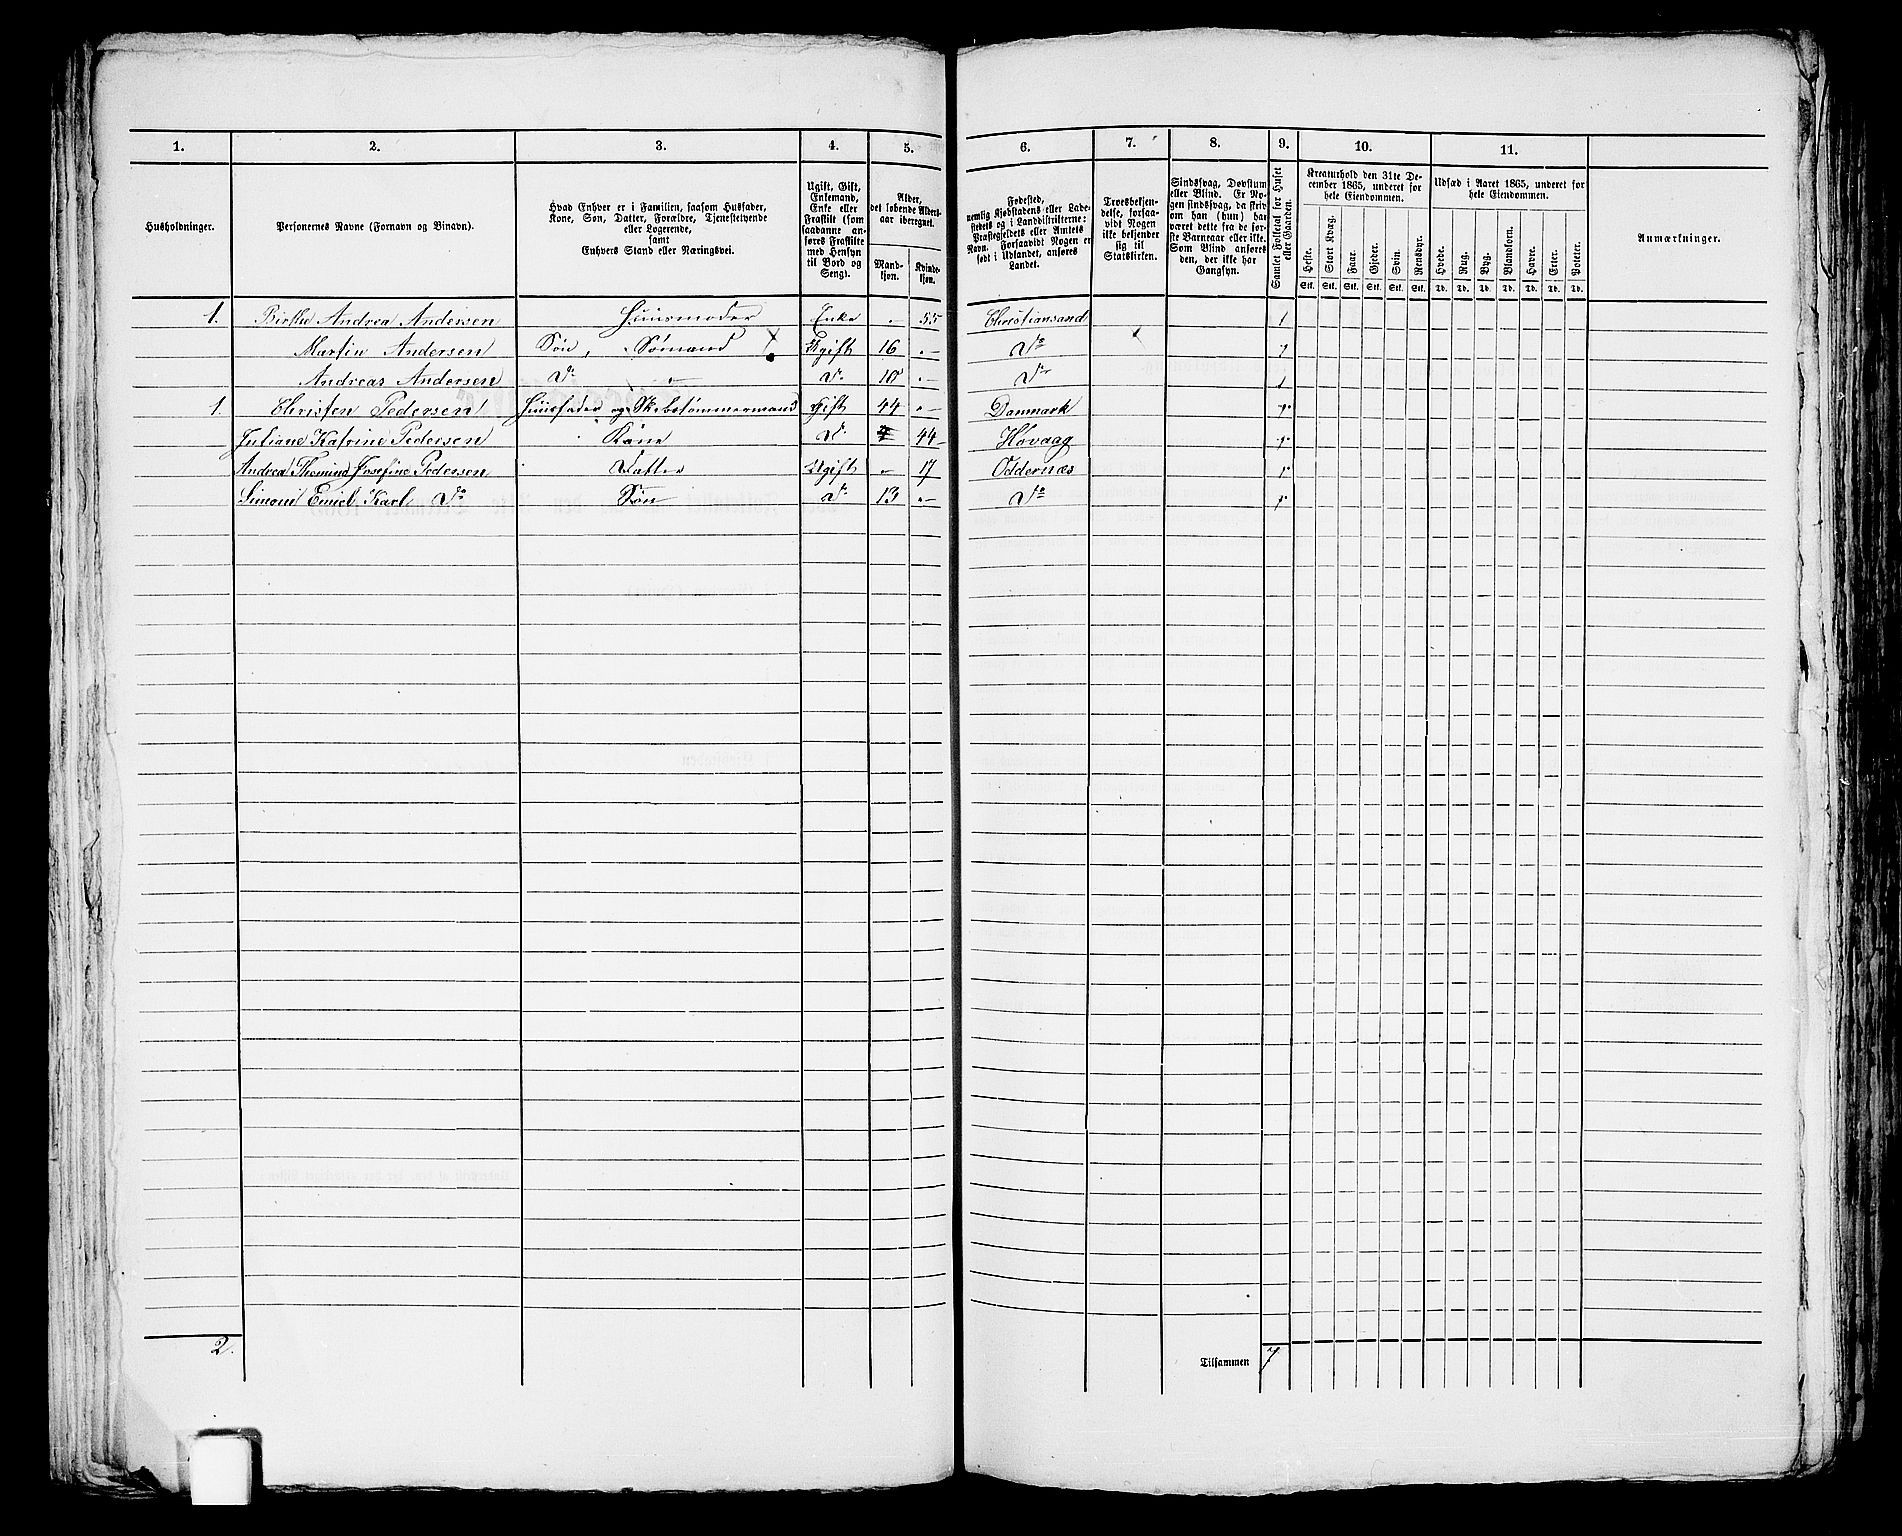 1. 2. 3. 4. 5. 6. 7. 8. 9. 10. 11.
Husholdninger.
Personernes Navne (Fornavn og Binavn).
Hvad Enhver er i Familien, saasom Husfader,
Kone, Søn, Datter, Forældre, Tjenestetyende
eller Logerende,
samt
Enhvers Stand eller Næringsvei.
Ugift, Gift,
Enkemand,
Enke eller
Fraskilt (som
saadanne an-
føres Fraskilte
med Hensyn
til Bord og
Seng).
Alder,
det løbende Alders-
aar iberegnet.
Mand-
kjøn.
Kvinde-
kjøn.
Fødested,
nemlig Kjøbstadens eller Lade-
stedets og i Landdistrikterne:
Præstegjeldets eller Amtets
Navn. Forsaavidt Nogen er
født i Udlandet, anføres
Landet.
Troesbekjen-
delse, forsaa-
vidt Nogen
ikke bekjender
sig til
Statskirken.
Sindssvag, Døvstum
eller Blind. Er No-
gen sindssvag, da skriv
om han (hun) har
været dette fra de før-
ste Barneaar eller ikke.
Som Blind anføres
den, der ikke har
Gangsyn.
Samlet Folketal for Huset
eller Gaarden.
Kreaturhold den 31te De-
cember 1865, underet for
hele Eiendommen.
Heste. Stort Kvæg. Faar. Gjeder. Svin. Rensdyr.
Stk. Stk. Stk. Stk. Stk. Stk.
Udsæd i Aaret 1865, underet for
hele Eiendommen.
Hvede. Rug. Byg. Blandkorn. Havre. Erter. Poteter.
Td. Td. Td. Td. Td. Td. Td.
Anmærkninger.
1. Andrea Andersen Huusmoder Enke - 55 Christiansand 1
Martin Andersen Søn, Sømand Ugift 16 - Do 1
Andreas Andersen Do - Do 10 - Do 1
1. Christen Pedersen Huusfader og Skibstømmermand Gift 44 - Danmark 1
Juliane Katrine Pedersen Kone Do 44 Høvaag 1
Andrea Josefine Pedersen Datter Ugift - 17 Oddernæs 1
Simon Emiel Karl Do Søn Do 13 - Do 1
2.
Tilsammen 7